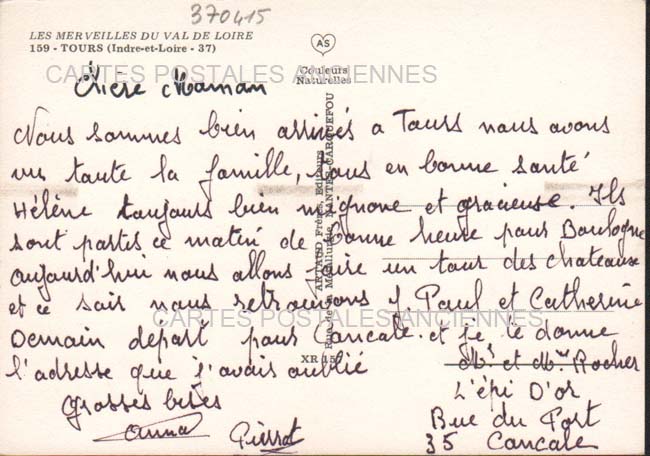 370415
LES MERVEILLES DU VAL DE LOIRE
159 - TOURS (Indre-et-Loire - 37)
AS
Couleurs
Naturelles
CARTES POSTALES ANCIENNES
Chère Maman
Nous sommes bien arrivés a Tours nous avons
vu toute la famille, tous en bonne santé
Hélène toujours bien mignone et gracieuse. Ils
sont partes ce matin de bonne heure pour Boulogne
aujourd'hui nous allons faire un tour des chateaux
et ce soir nous retrouvons J. Paul et Catherine
CARTES POSTALES ANCIENNES
Demain depart pour Cancale et je te donne
l'adresse que j'avais oublié
Mr et Mme Rocher
L'épi D'or
Rue du Port
35 Cancale
grosses bises
Anna Pierrot
ARTAUD Frères, Editeurs
Rue de la Métallurgie, NANTES-CARQUEFOU
XR 15